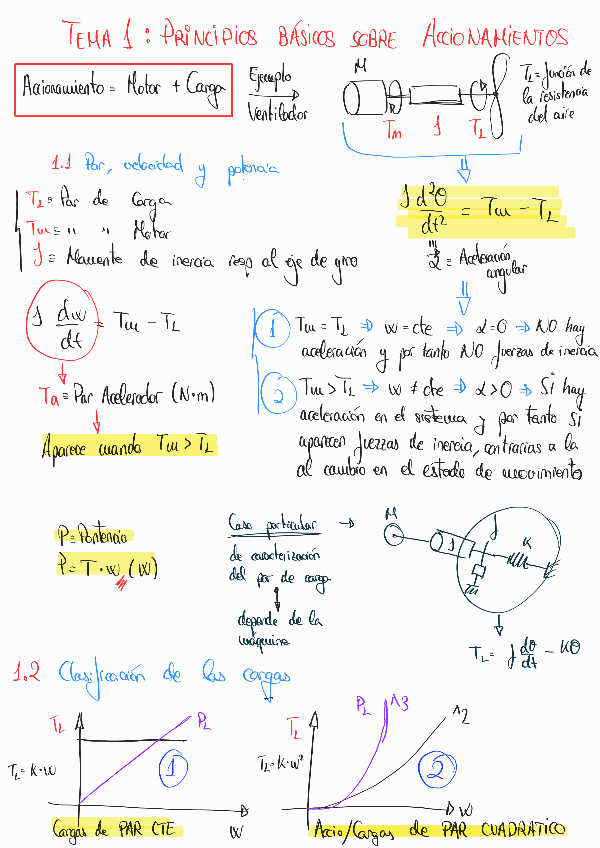 TEMA 1: PRINCIPIOS BÁSICOS SOBRE ACCIONAMIENTOS
Accionamiento = Motor + Carga
Ejemplo
Ventilador
M
Tm J TL
TL = función de
la resistencia
del aire
1.1 Par, velocidad y potencia
TL ≡ Par de Carga
Tm ≡ " " Motor
J ≡ Momento de inercia resp al eje de giro
J d²θ/dt² = Tm - TL
α ≡ Aceleración
angular
J dw/dt = Tm - TL
Ta ≡ Par Acelerador (N·m)
Aparece cuando Tm > TL
1 Tm = TL ⇒ w = cte ⇒ α = 0 ⇒ NO hay
aceleración y por tanto NO fuerzas de inercia
2 Tm > TL ⇒ w ≠ cte ⇒ α > 0 ⇒ Si hay
aceleración en el sistema y por tanto Si
aparecen fuerzas de inercia, contrarias a la
al cambio en el estado de movimiento
P ≡ Pontencia
P = T · w (W)
Caso particular →
de caracterización
del par de carga
depende de la
máquina
M
J
f
K
m
TL = f dθ/dt - Kθ
1.2 Clasificación de las cargas
TL
PL
TL = K·w
1
w
Cargas de PAR CTE
TL
PL ^3
^2
TL = K·w²
2
w
Acio/Cargas de PAR CUADRATICO